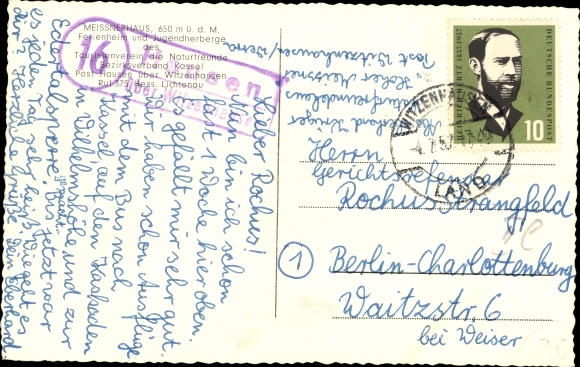 MEISSNERHAUS, 650 m ü. d. M.
Ferienheim und Jugendherberge
des
Touristenverein die Naturfreunde
Bezirksverband Kassel
Post Hausen über Witzenhausen
Ruf 575 Hess. Lichtenau
16
Hausen
über Witzenhausen
Lieber Rochus!
Nun bin ich schon
fast 1 Woche hier oben.
Es gefällt mir sehr gut.
Wir haben schon Ausflüge
mit dem Bus nach
Kassel auf den
in Wilhelmshöhe und zur
Edertalsperre gemacht. Bis jetzt war
es jeden Tag sehr heiß. Wie geht es
Dir? Herzliche Grüße Dein Eberhard
Abs. Eberhard Krüger
Naturfreundehaus
Hoher Meissner
Post Witzenhausen/Werra
HEINRICH HERTZ 1857·1957
DEUTSCHE BUNDESPOST
10
WITZENHAUSEN
LAND
Herrn
Gerichtsreferendar
Rochus Strangfeld
1 Berlin-Charlottenburg
Waitzstr. 6
bei Weiser